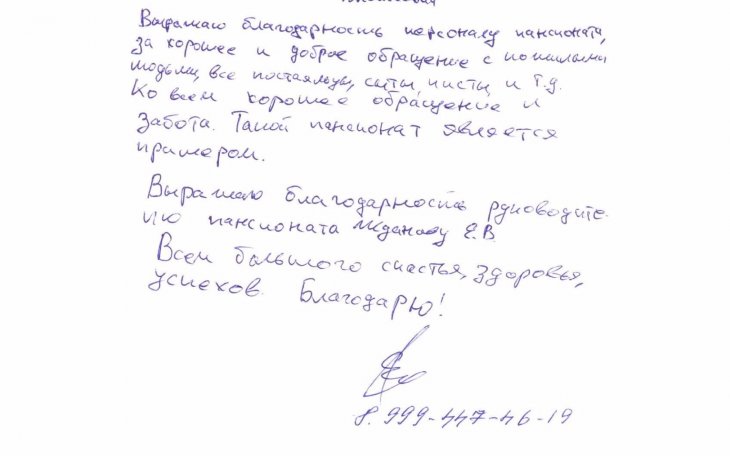 Выражаю благодарность персоналу пансионата,
за хорошее и доброе обращение с пожилыми
людьми, все постояльцы, сыты, чисты, и т.д.
Ко всем хорошее обращение и
забота. Такой пансионат является
примером.
Выражаю благодарность рдководите-
лю пансионата Жданову Е.В.
Всем большого счастья, здоровья,
успехов. Благодарю!
8.999-447-46-19